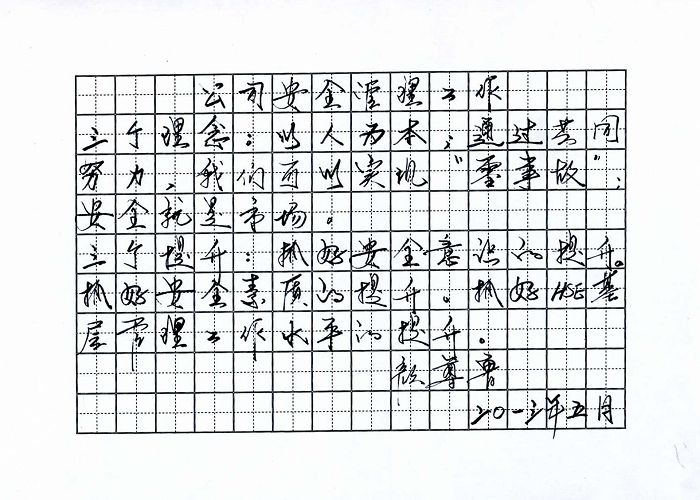 公司安全管理工作
三个理念：以人为本；通过共同
努力，我们可以实现“零事故”；
安全就是市场。
三个提升：抓好安全意识的提升。
抓好安全素质的提升。抓好HSE基
层管理工作水平的提升。
颜尊曹
二〇一二年五月